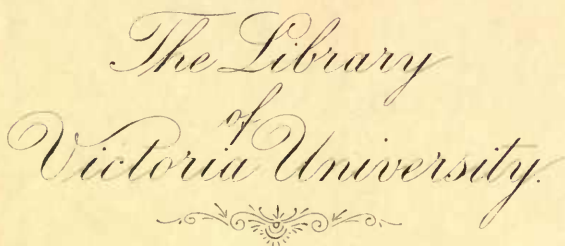 The Library
of
Victoria University.